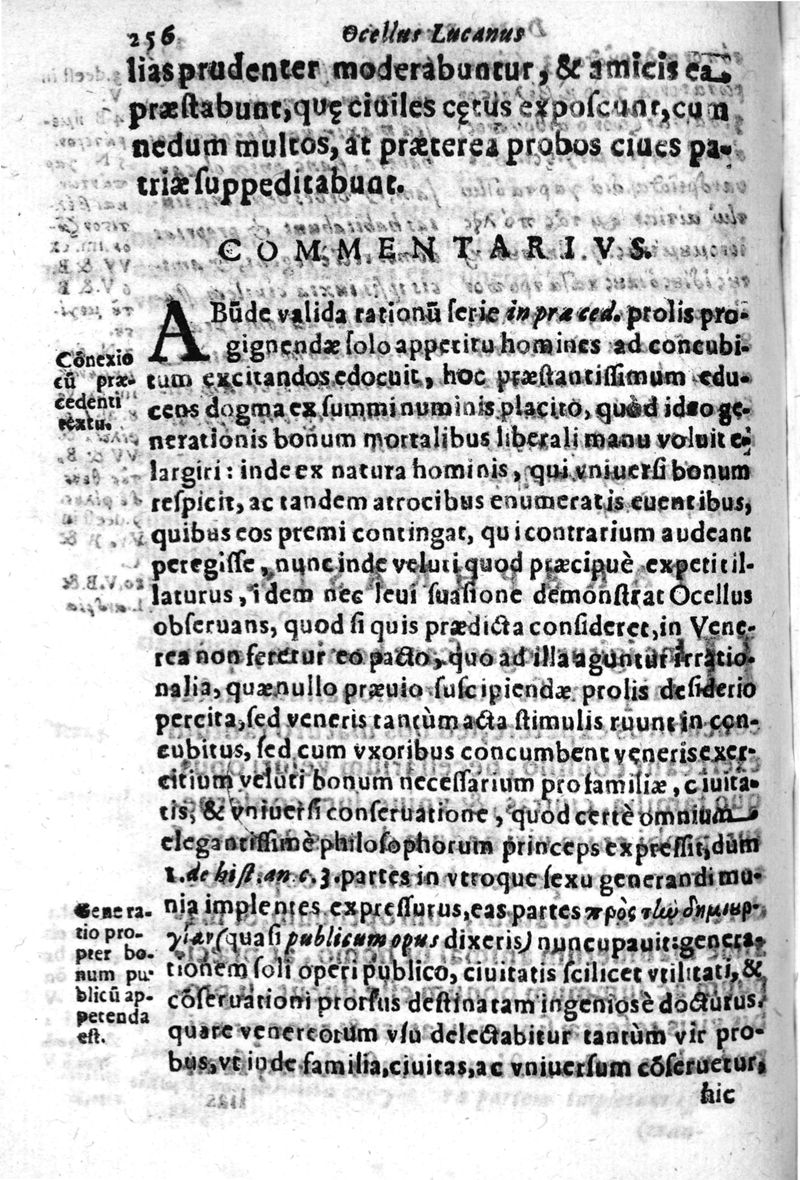 256 Ocellus Lucanus
lias prudenter moderabuntur, & amicis ea
præstabunt, quę ciuiles cętus exposcunt, cum
nedum multos, at præterea probos ciues pa-
triæ suppeditabunt.
COMMENTARIVS.
ABũde valida rationũ serie in præced. prolis pro-
gignendæ solo appetitu homines ad concubi-
tum excitandos edocuit, hoc præstantissimum edu-
cens dogma ex summi numinis placito, quòd ideo ge-
nerationis bonum mortalibus liberali manu voluit e-
largiri: inde ex natura hominis, qui vniuersi bonum
respicit, ac tandem atrocibus enumeratis euentibus,
quibus eos premi contingat, qui contrarium audeant
peregisse, nunc inde veluti quod præcipuè expetit il-
laturus, idem nec leui suasione demonstrat Ocellus
obseruans, quod si quis prædicta consideret, in Vene-
rea non feretur eo pacto, quo ad illa aguntur irratio-
nalia, quæ nullo præuio suscipiendæ prolis desiderio
percita, sed veneris tantùm acta stimulis ruunt in con-
cubitus, sed cum vxoribus concumbent veneris exer-
citium veluti bonum necessarium pro familiæ, ciuita-
tis, & vniuersi conseruatione, quod certè omnium
elegantissimè philosophorum princeps expressit, dùm
1. de hist. an. c. 3. partes in vtroque sexu generandi mu-
nia implentes expressurus, eas partes πρὸς τὼ δημιουρ-
γίαν (quasi publicum opus dixeris) nuncupauit: genera-
tionem soli operi publico, ciuitatis scilicet vtilitati, &
cōseruationi prorsus destinatam ingeniosè docturus.
quare venereorum vsu delectabitur tantùm vir pro-
bus, vt inde familia, ciuitas, ac vniuersum cōseruetur,
hic
Cōnexio
cũ præ-
cedenti
textu.
Genera-
tio pro-
pter bo-
num pu-
blicũ ap-
petenda
est.